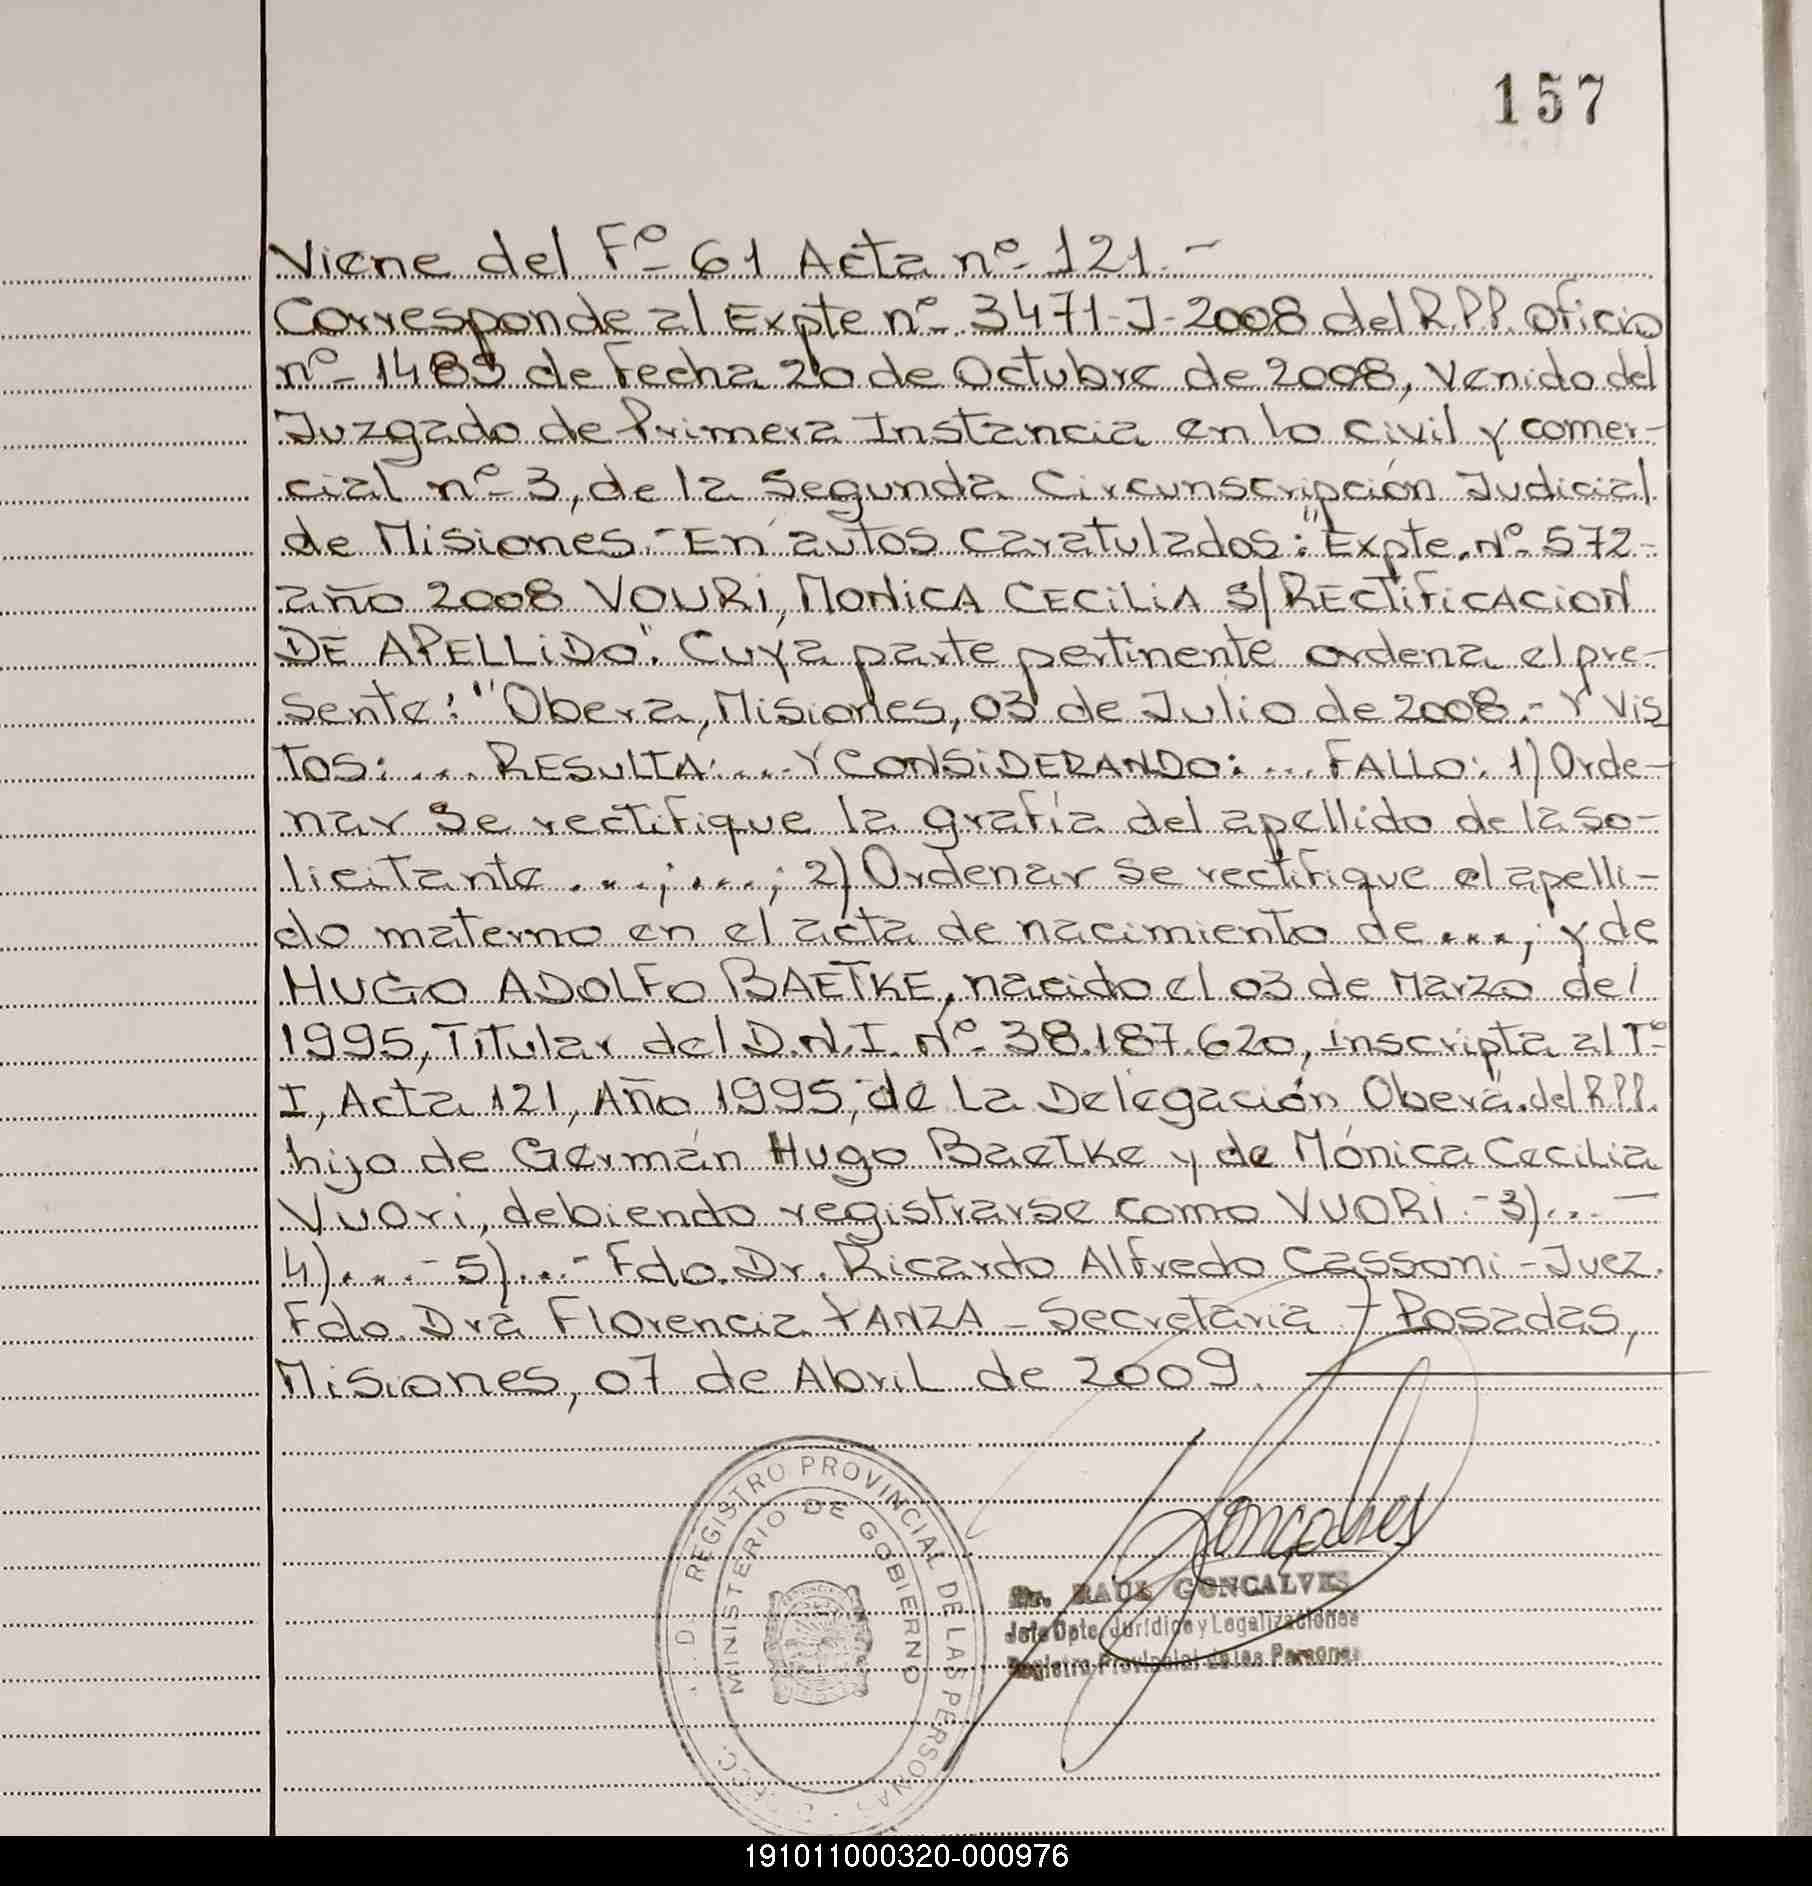 157
Viene del Fº 61 Acta nº 121.-
Corresponde al Expte nº 3471-J-2008 del R.P.P. oficio
nº 1483 de fecha 20 de Octubre de 2008, venido del
Juzgado de Primera Instancia en lo civil y comer-
cial nº 3, de la Segunda Circunscripción Judicial
de Misiones.- En autos caratulados: "Expte. Nº 572-
año 2008 VOURI, MONICA CECILIA S/RECTIFICACION
DE APELLIDO". Cuya parte pertinente ordena el pre-
sente: "Obera, Misiones, 03 de Julio de 2008.- Y VIS
TOS: ... RESULTA: ... Y CONSIDERANDO: ... FALLO: 1) Orde-
nar se rectifique la grafía del apellido de la so-
licitante ...; ...; 2) Ordenar se rectifique el apelli-
do materno en el acta de nacimiento de ...; y de
HUGO ADOLFO BAETKE, nacido el 03 de Marzo de
1995, Titular del D.N.I. Nº 38.187.620, inscripta al Tº
I, Acta 121, Año 1995, de La Delegación Oberá. del R.P.P.
hijo de Germán Hugo Baetke y de Mónica Cecilia
Vuori, debiendo registrarse como VUORI.- 3)... -
4)...- 5)...- Fdo. Dr. Ricardo Alfredo Cassoni - Juez.
Fdo. Dra Florencia YANZA - Secretaria - Posadas,
Misiones, 07 de Abril de 2009.
REGISTRO PROVINCIAL DE LAS PERSONAS
MINISTERIO DE GOBIERNO
Gonçalves
Dr. RAUL GONCALVES
Jefe Dpto. Jurídico y Legalizaciones
Registro Provincial de las Personas
191011000320-000976